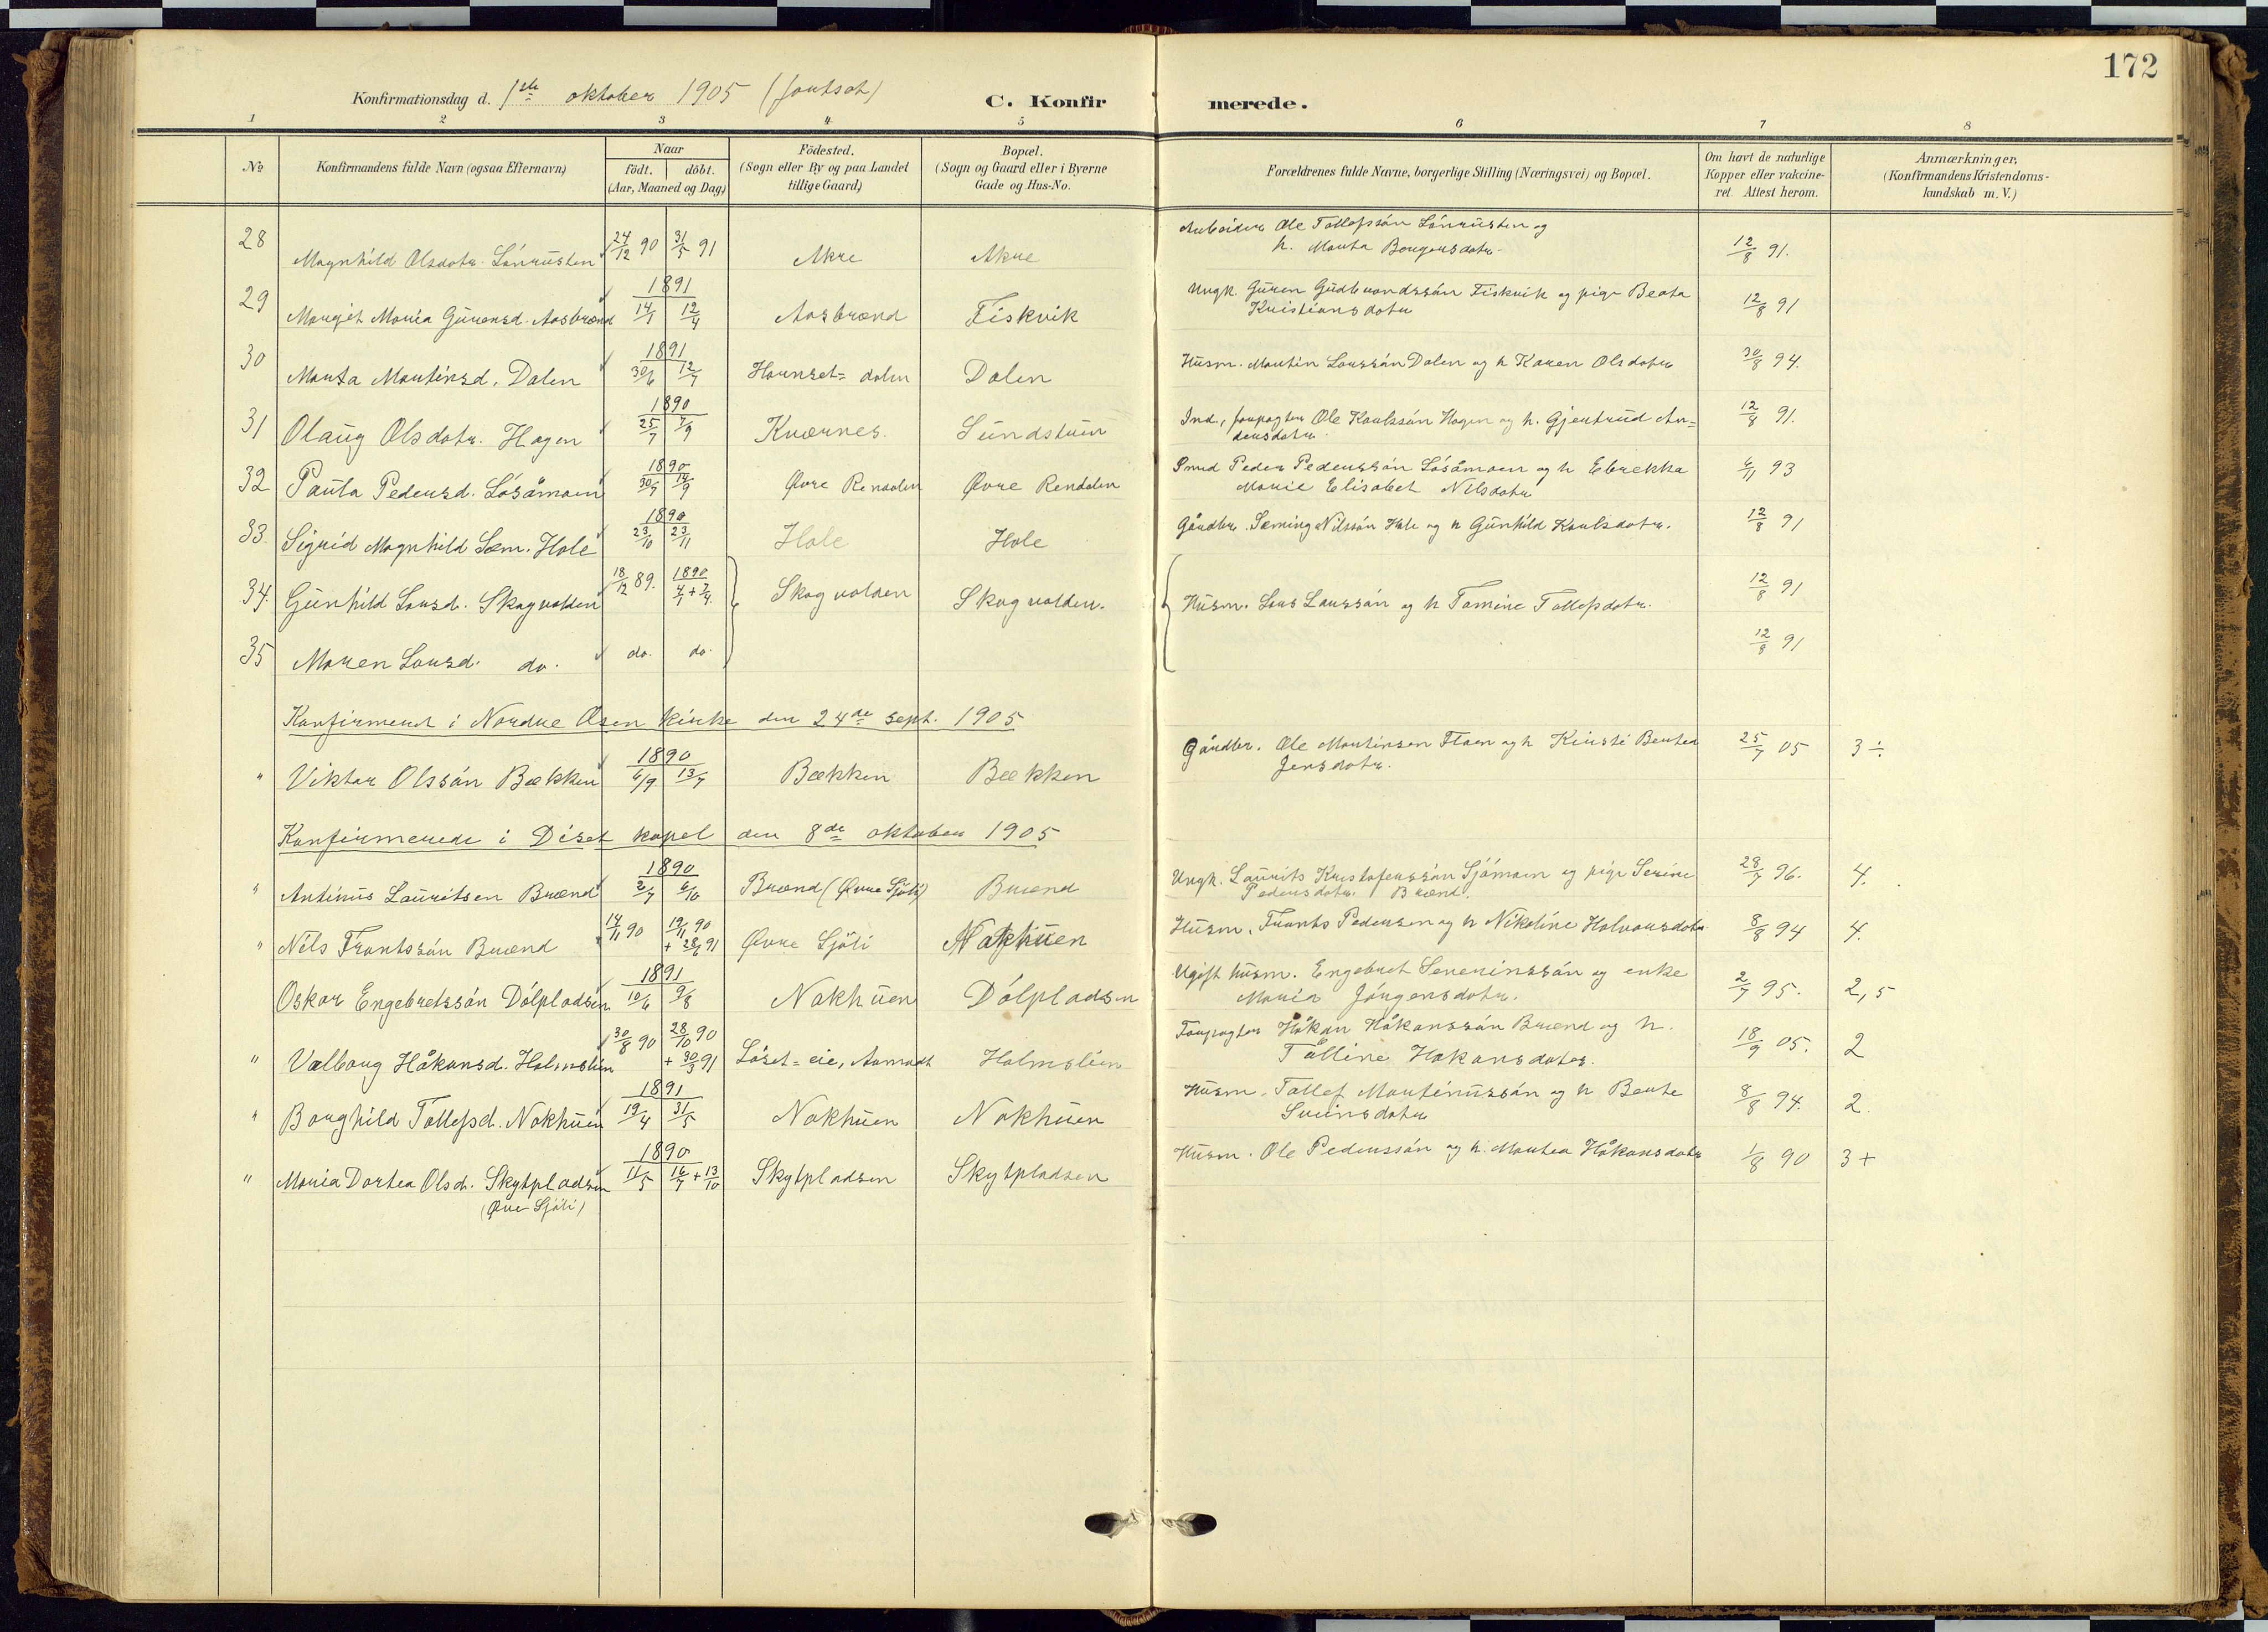 172
Konfirmationsdag d. 1ste oktober 1905 (fortsat)
C. Konfirmerede.
1 2 3 4 5 6 7 8
No
Konfirmandens fulde Navn (ogsaa Efternavn)
Naar
födt. döbt.
(Aar, Maaned og Dag)
Födested.
(Sogn eller By og paa Landet
tillige Gaard)
Bopæl.
(Sogn og Gaard eller i Byerne
Gade og Hus-No.
Forældrenes fulde Navne, borgerlige Stilling (Næringsvei) og Bopæl.
Om havt de naturlige
Kopper eller vakcine-
ret. Attest herom.
Anmærkninger,
(Konfirmandens Kristendoms-
kundskab m. V.)
28 Magnhild Olsdotr. Lónrusten 24/12 90 31/5 91 Akre Akre Arbeider Ole Tollefssón Lónrusten og
h. Marta Borgersdotr. 12/8 91.
1891
29 Margit Maria Gurensd. Aasbrænd 14/1 12/4 Aasbrænd Fiskvik Ungk. Guren Gudbrandssón Fiskvik og pige Beata
Kristiansdotr 12/8 91
1891
30 Marta Martinsd. Dalen 30/6 12/7 Harnset= dalen Dalen Husm. Martin Larssón Dalen og h Karen Olsdotr 30/8 94.
1890
31 Olaug Olsdotr. Hagen 25/7 7/9 Kværnes. Sundstuen Ind., forpagter Ole Karlssón Hagen og h. Gjertrud An=
dersdotr 12/8 91.
1890
32 Paula Pedersd. Lósåmoen 30/7 14/9 Øvre Rendalen Øvre Rendalen Smed Peder Pederssón Lósåmoen og h Ebrekka
Marie Elisabet Nilsdotr 6/11 93
1890
33. Sigrid Magnhild Sæm. Hole 23/10 23/11 Hole Hole Gårdbr. Sæming Nilssón Hole og h Gunhild Karlsdotr. 12/8 91
34. Gunhild Larsd. Skogvolden 18/12 89. 1890 Skogvolden Skogvolden. Husm. Lars Larssón og h Tomine Tollefsdotr. 12/8 91
35 Maren Larsd. do. do. do. 12/8 91
Konfirmert i Nordre Osen kirke den 24de sept. 1905
1890
" Viktor Olssón Bækken 6/9 13/7 Bækken Bækken Gårdbr. Ole Martinsen Floen og h Kirsti Bertea
Jensdotr. 25/7 05 3 ÷
Konfirmerede i Diset kapel den 8de oktober 1905
1890
" Antinus Lauritsen Brænd 2/7 6/10 Brænd (Øvre Sjöli) Brænd Ungk. Laurits Kristoferssón Sjómoen og pige Serine
Pedersdotr. Brænd. 28/7 96. 4.
" Nils Frantssón Brænd 14/11 90 19/11 90
+ 28/6 91 Øvre Sjöli Nakhuen Husm. Frants Pedersen og h Nikoline Halvorsdotr 8/8 94 4.
1891
Oskar Engebretssón Dólpladsen 10/6 9/8 Nakhuen Dólpladsen Ugift husm. Engebret Severinssón og enke
Maria Jórgensdotr. 2/7 95. 2,5
" Valborg Håkonsd. Holmslien 30/8 90 28/10 90
+ 30/3 91 Löset=eie, Aamodt Holmslien Forpagter Håkon Håkonssón Brænd og h.
Tolline Hakonsdotr. 18/9 05. 2
1891
" Borghild Tollefsd. Nakhuen 19/4 31/5 Nakhuen Nakhuen Husm. Tollef Martinussón og h Berte
Sveinsdotr 8/8 94. 2.
1890
" Maria Dortea Olsd. Skytpladsen 11/5 16/7 + 13/10 Skytpladsen Skytpladsen Husm. Ole Pederssón og h. Martea Håkonsdotr 1/8 90 3+
(Øvre Sjöli)